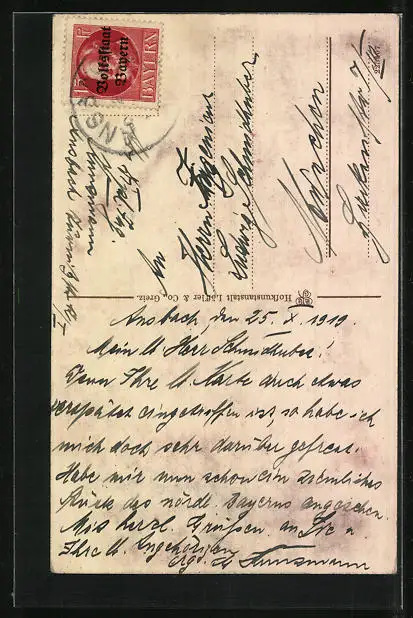 Volksstaat
Bayern
BAYERN
15
Herrn Ingenieur
Ludwig Schmidhuber
München
Hofkunstanstalt Löffler & Co., Greiz.
Ansbach, den 25. X. 1919.
Mein l. Herr Schmidhuber!
Wenn Ihre l. Karte auch etwas
verspätet eingetroffen ist, so habe ich
mich doch sehr darüber gefreut.
Habe mir nun schon ein ziemliches
Stück des nördl. Bayerns angesehen.
Mit herzl. Grüßen an Sie u
Ihre l. Angehörigen